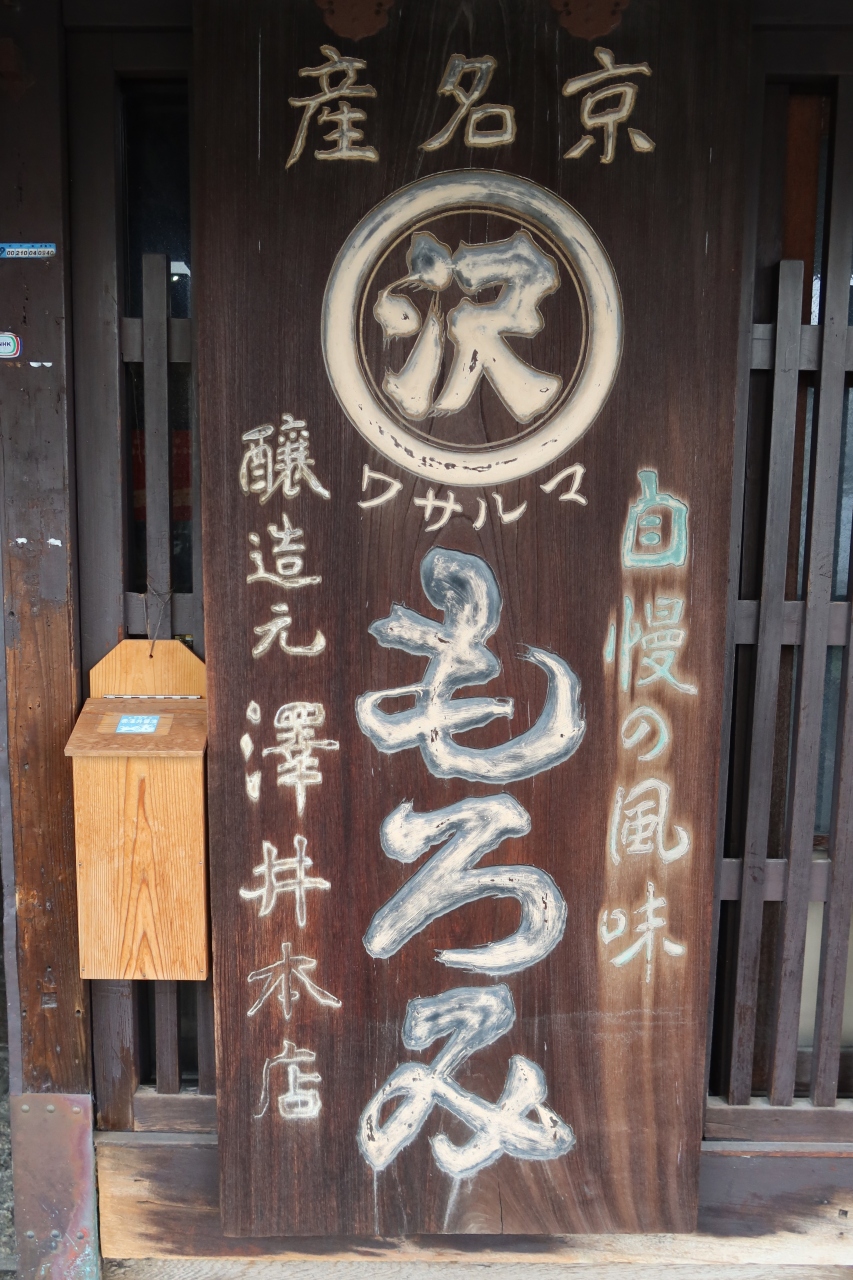 京名産
沢
マルサワ
自慢の風味
もろみ
醸造元 澤井本店
NHK